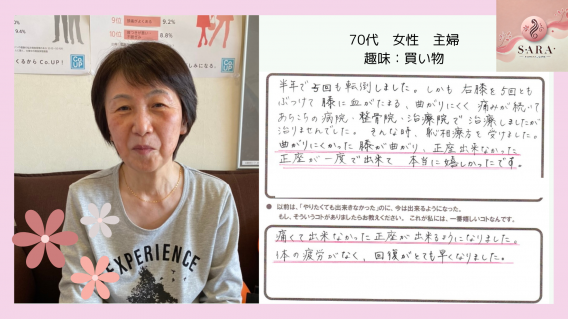 9位
9.2%
9.4%
10位
8.8%
くるから Co.UP!
CO UP
しみになる。
EXPERIENCE
70代　女性　主婦
趣味：買い物
SARA
半年で5回も転倒しました。しかも右膝を5回とも
ぶつけて膝に血がたまる、曲がりにくく痛みが続いて
あちらこちらの病院・整骨院・治療院で治療しましたが
治りませんでした。そんな時、恥相療方を受けました。
曲がりにくかった膝が曲がり、正座出来なかった
正座が一度で出来て　本当に嬉しかったです。
● 以前は、「やりたくても出来きなかった」のに、今は出来るようになった。
もし、そういうコトがありましたらお教えください。 これが私には、一番嬉しいコトなんです。
痛くて出来なかった正座が出来るようになりました。
体の疲労がなく、回復がとても早くなりました。